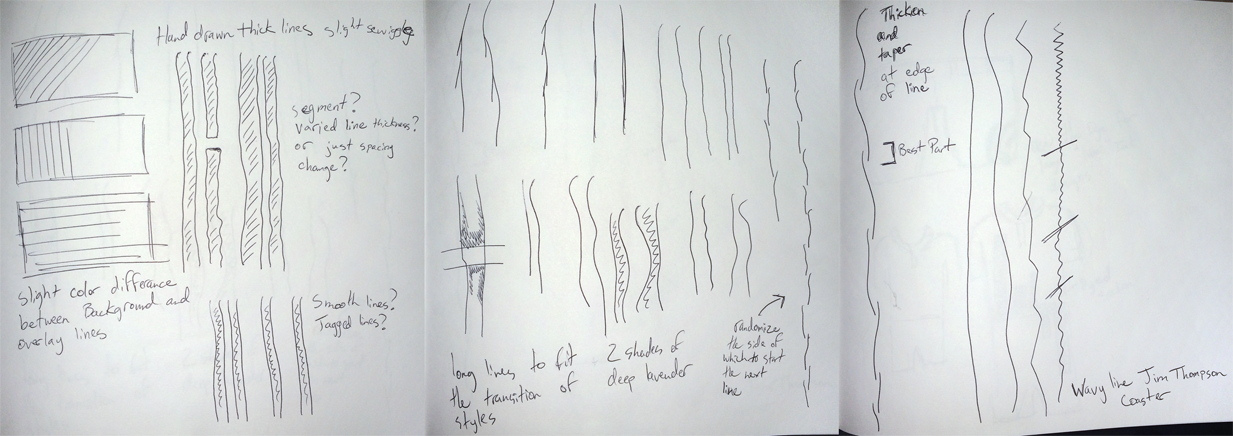 Hand drawn thick lines slight
segment?
varied line thickness?
or just spacing
change?
slight color difference
between Background and
overlay lines
Smooth lines?
Jagged lines?
long lines to fit
the transition of
styles
2 shades of
deep lavender
randomize
the side of
which to start
the next
line
Thicken
and
taper
at edge
of line
Best Part
Wavy line Jim Thompson
Coaster